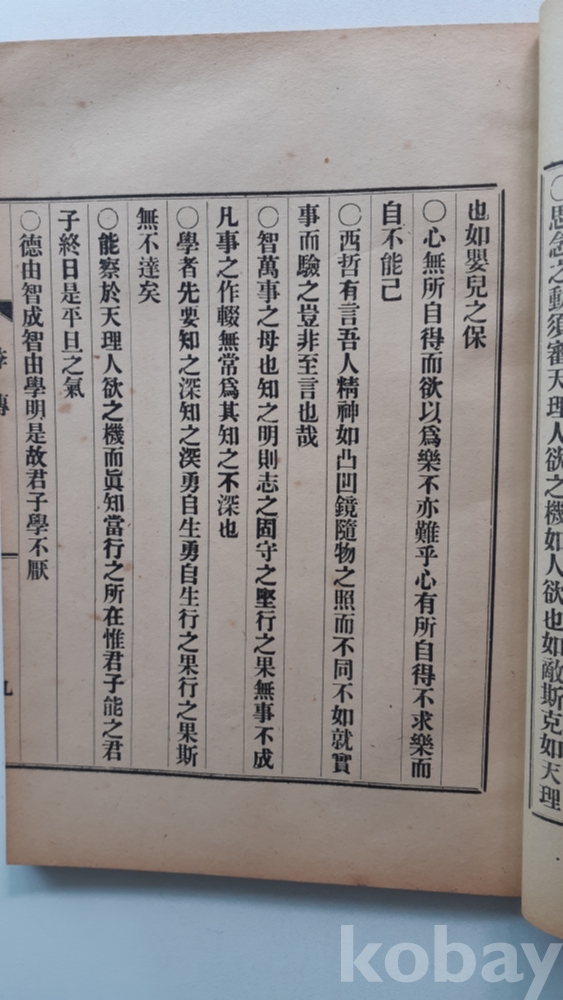 〇思念之動須審天理人欲之機如人欲也如敵斯克如天理
也如嬰兒之保
〇心無所自得而欲以爲樂不亦難乎心有所自得不求樂而
自不能已
〇西哲有言吾人精神如凸凹鏡隨物之照而不同不如就實
事而驗之豈非至言也哉
〇智萬事之母也知之明則志之固守之堅行之果無事不成
凡事之作輟無常爲其知之不深也
〇學者先要知之深知之深勇自生勇自生行之果行之果斯
無不達矣
〇能察於天理人欲之機而眞知當行之所在惟君子能之君
子終日是平旦之氣
〇德由智成智由學明是故君子學不厭
傳
九
kobay